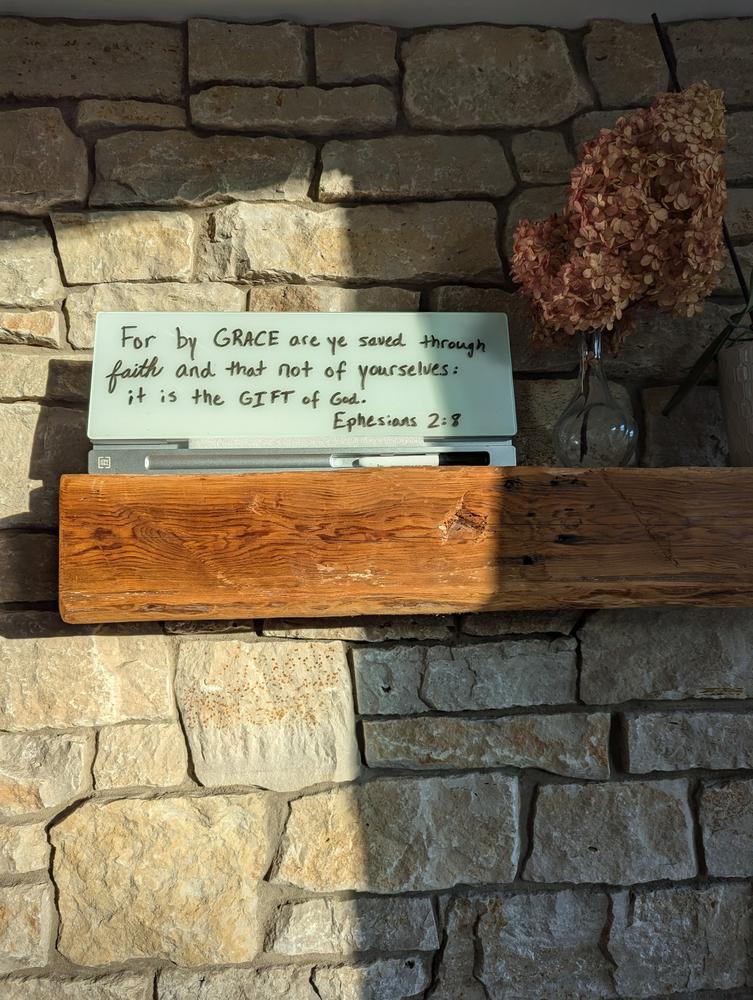 For by GRACE are ye saved through
faith and that not of yourselves:
it is the GIFT of God.
Ephesians 2:8